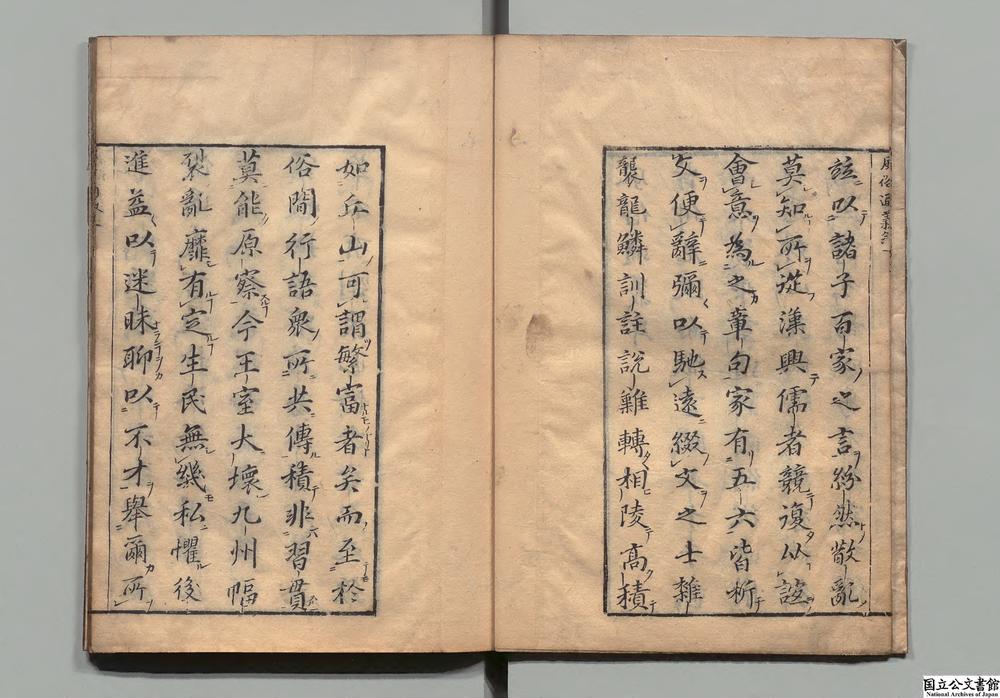 風俗通義
竝以諸子百家之言紛然殽亂
莫知所從漢興儒者競復以誼
會意為之章句家有五六皆析
文便辭彌以馳遠綴文之士雜
襲龍鱗訓註說難轉相陵高積
如丘山可謂繁富者矣而至於
俗間行語衆所共傳積非習貫
莫能原察今王室大壞九州幅
裂亂靡有定生民無幾私懼後
進益以迷昧聊以不才舉爾所
国立公文書館
National Archives of Japan